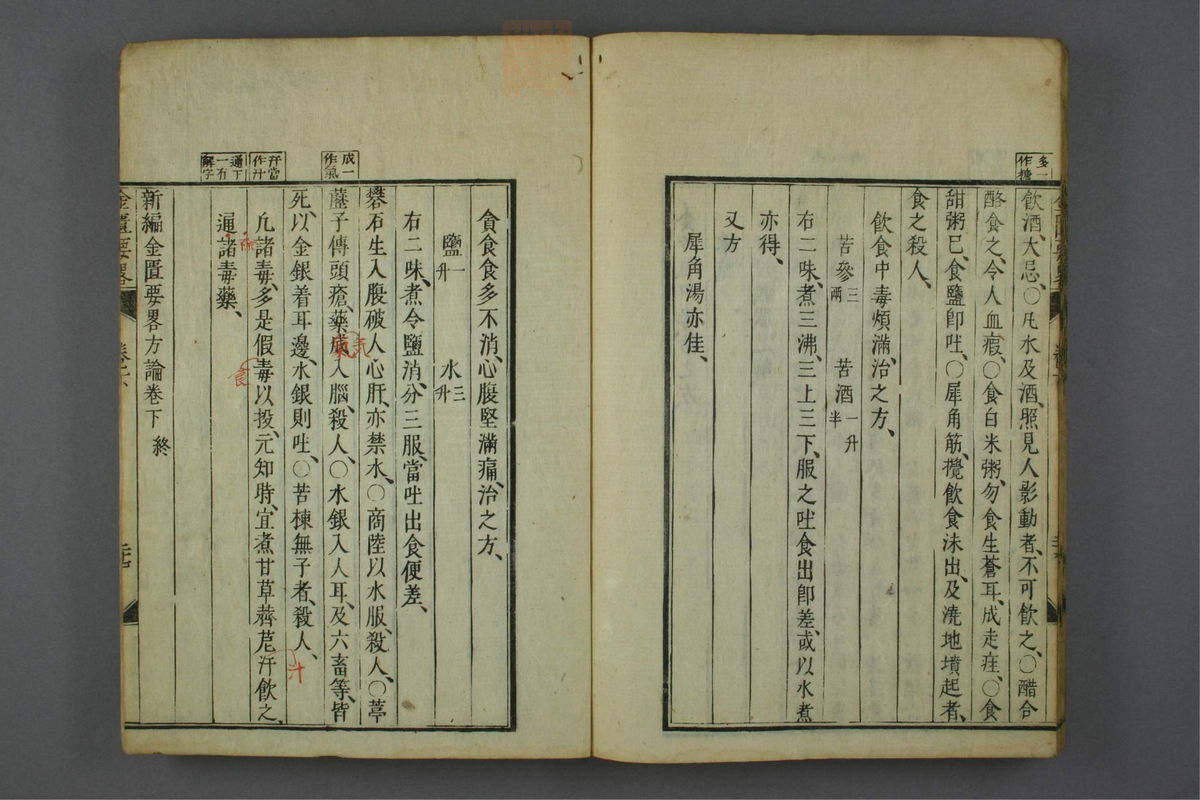 多一作糖
飲酒、大忌、〇凡水及酒、照見人影動者、不可飲之、〇醋合
酪食之、令人血瘕、〇食白米粥、勿食生蒼耳、成走疰、〇食
甜粥已、食鹽即吐、〇犀角筋、攪飲食沫出、及澆地墳起者、
食之殺人、
飲食中毒煩滿、治之方、
苦參三兩 苦酒一升半
右二味、煮三沸、三上三下、服之吐食出即差、或以水煮
亦得、
又方
犀角湯亦佳、
貪食食多不消、心腹堅滿痛、治之方、
鹽一升 水三升
右二味、煮令鹽消、分三服、當吐出食便差、
礬石生入腹、破人心肝、亦禁水、〇商陸以水服、殺人、〇葶
成一作氣
藶子傅頭瘡、藥成入腦、殺人、〇水銀入人耳、及六畜等、皆
気
死、以金銀着耳邊、水銀則吐、〇苦楝無子者、殺人、
汗當作汁
凡諸毒、多是假毒以投、元知時、宜煮甘草薺苨汗飲之、
食
汁
通下一有解字
通諸毒藥、
解
新編金匱要畧方論卷下 終
金匱要畧 卷下 三十七